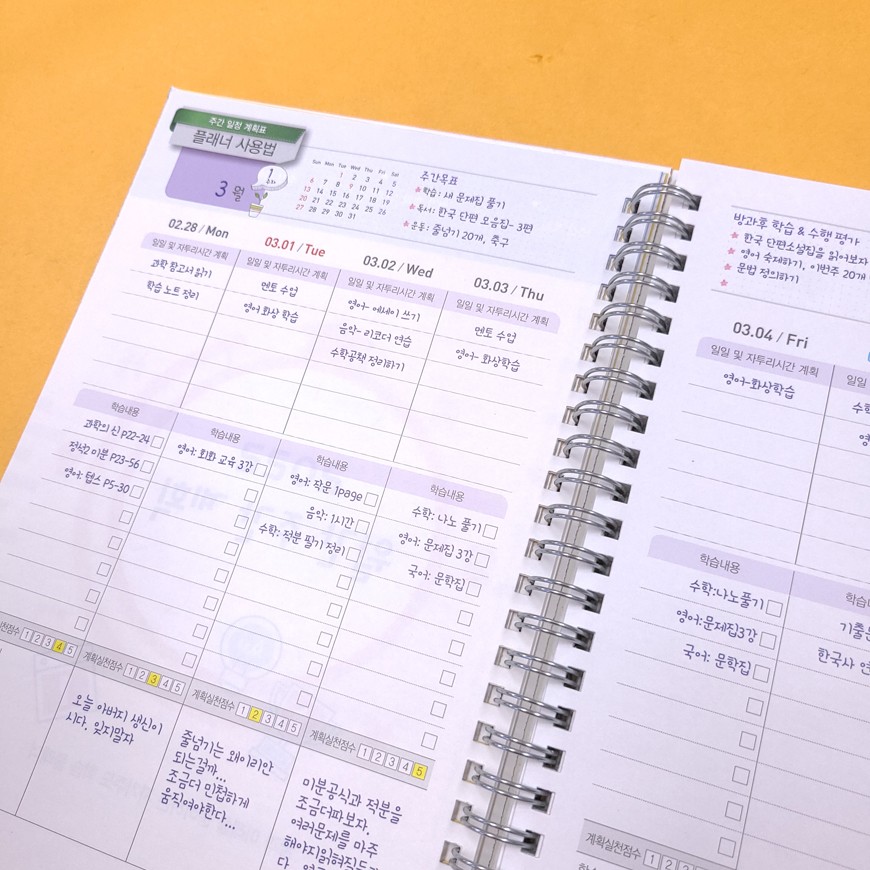 주간 일정 계획표
플래너 사용법
3 월
1
Sun Mon Tue Wed Thu Fri Sat
1 2 3 4 5
6 7 8 9 10 11 12
13 14 15 16 17 18 19
20 21 22 23 24 25 26
27 28 29 30 31
주간목표
학습: 새 문제집 풀기
독서: 한국 단편 모음집- 3편
운동: 줄넘기 20개, 축구
02.28 / Mon
일일 및 자투리시간 계획
과학 참고서 읽기
학습 노트 정리
학습내용
과학의 신 P22-24
정석2 미분 P23-56
영어: 텝스 P5-30
계획실천점수 1 2 3 4 5
03.01 / Tue
일일 및 자투리시간 계획
멘토 수업
영어 화상 학습
학습내용
영어: 회화 교육 3강
계획실천점수 1 2 3 4 5
오늘 아버지 생신이
시다. 잊지말자
03.02 / Wed
일일 및 자투리시간 계획
영어- 에세이 쓰기
음악- 리코더 연습
수학공책 정리하기
학습내용
영어: 작문 1page
음악: 1시간
수학: 적분 필기 정리
계획실천점수 1 2 3 4 5
줄넘기는 왜이리안
되는걸까...
조금더 민첩하게
움직여야한다...
03.03 / Thu
일일 및 자투리시간 계획
멘토 수업
영어- 화상학습
학습내용
수학: 나노 풀기
영어: 문제집 3강
국어: 문학집
계획실천점수 1 2 3 4 5
미분공식과 적분을
조금더파보자.
여러문제를 마주
해야지읽혀직든
다.
방과후 학습 & 수행 평가
한국 단편소설집을 읽어보자
영어 숙제하기, 이번주 20개
문법 정의하기
03.04 / Fri
일일 및 자투리시간 계획
영어-화상학습
학습내용
수학:나노풀기
영어:문제집3강
국어: 문학집
계획실천점수 1 2 3
일일
수학
학습내
기출문
한국사 연